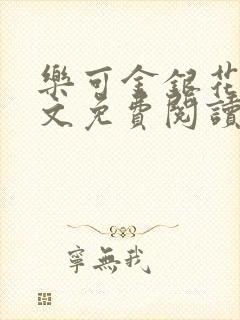 樂可金銀花
文免費閱讀
寧無我